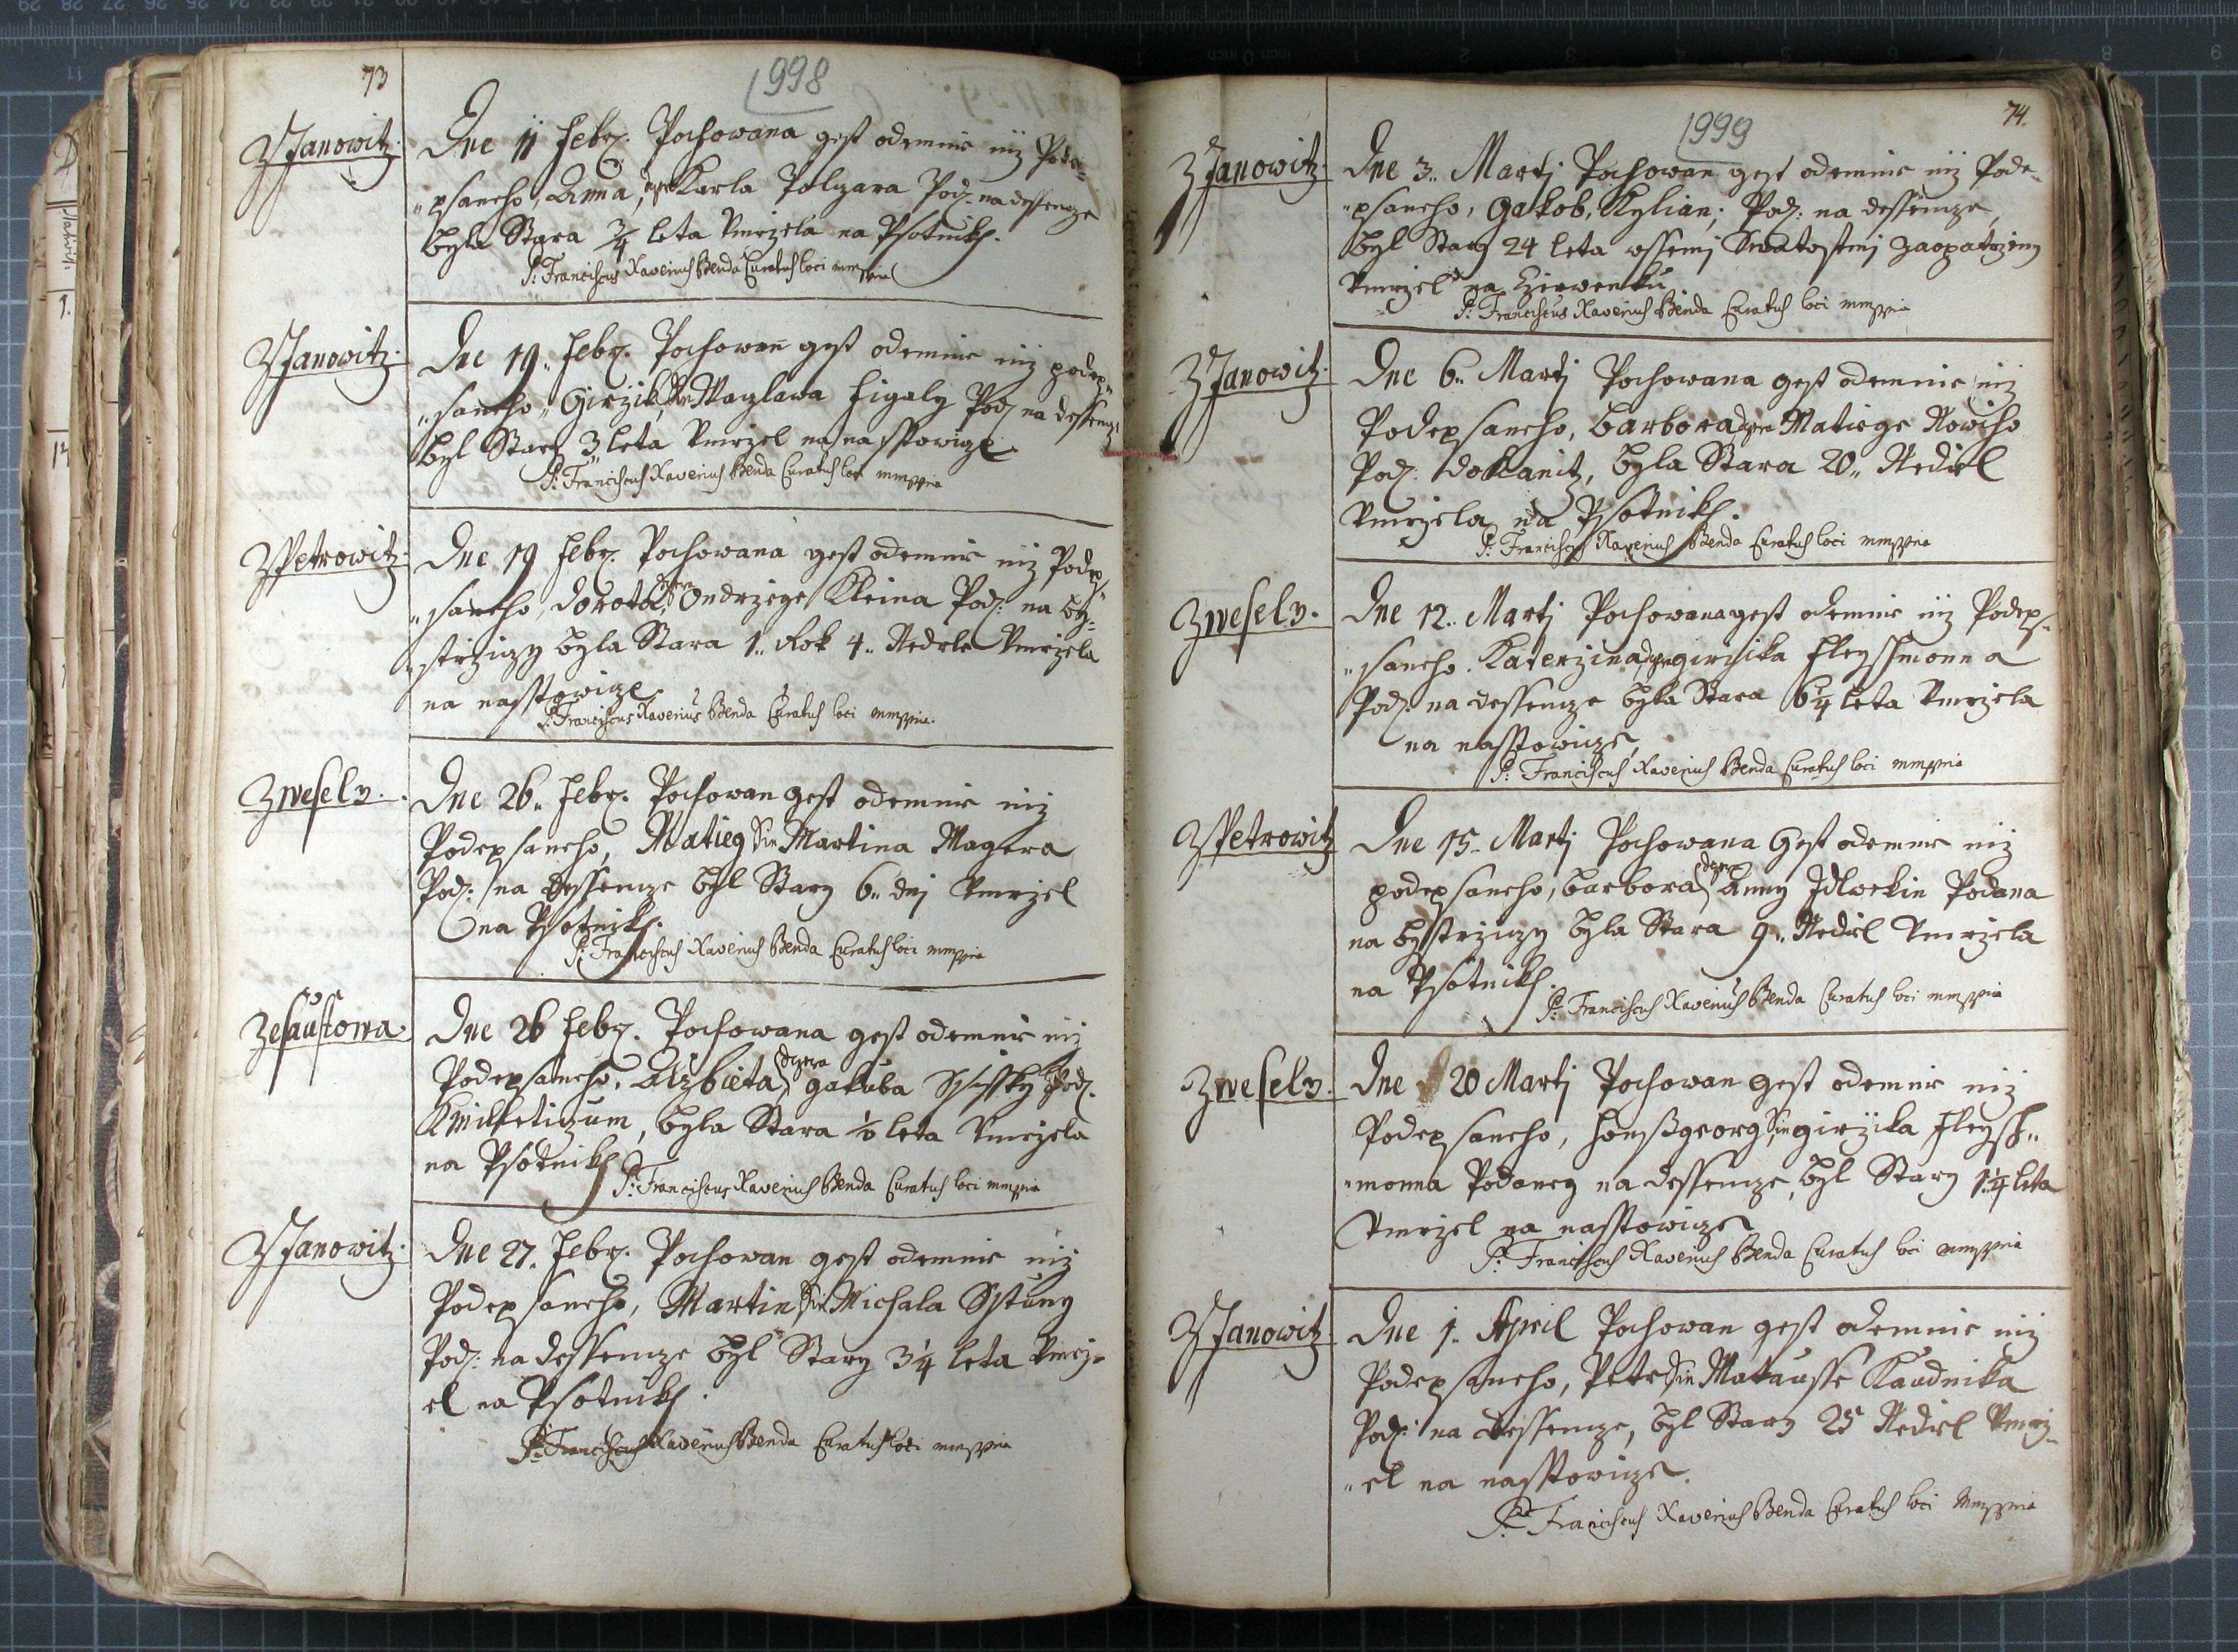 73
1998
Z Janowitz.
Dne 11 Febr. Pochowana gest odemnie niz Pode=
"psaneho Anna, Karla Polzara Pod. na dessencze
byla Stara 3/4 leta Umrzela na Psotnikh.
P: Franciscus Xaverius Benda Curatus loci mmpria
Z Janowitz.
Dne 19. Febr. Pochowan gest odemnie niz podep"
"saneho, Girzik, Sin Waczlawa Figaly Pod. na dessencz
byl Stary 3 leta Umrzel na nasstowicze.
P: Franciscus Xaverius Benda Curatus loci mmpria
Z Petrowitz.
Dne 19 Febr. Pochowana gest odemnie niz Podep"
"saneho, Dorota, dcera Ondrzege Kleina Pod: na by=
strziczy byla Stara 1.. Rok 4.. Nedele Umrzela
na nasstowicze.
P: Franciscus Xaverius Benda Curatus loci mmpria.
Z Wesely.
Dne 26.. Febr. Pochowan gest odemnie niz
Podepsaneho, Matieg Sin Martina Magera
Pod: na Dessencze byl Stary 6.. dnj Umrzel
na Psotnikh.
P: Franciscus Xaverius Benda Curatus loci mmpria
Ze Saustowa
Dne 26 Febr. Pochowana gest odemnie niz
Podepsaneho, Alzbieta, dcera Gakuba Pod.
byla Stara 1/2 leta Umrzela
na Psotnikh
P: Franciscus Xaverius Benda Curatus loci mmpria
Z Janowitz.
Dne 27. Febr. Pochowan gest odemnie niz
Podepsaneho, Martin Sin Michala Sstuny
Pod: na dessencze byl Stary 3 1/4 leta Umrz=
el na Psotnikh.
P: Franciscus Xaverius Benda Curatus loci mmpria
74.
1999
Z Janowitz.
Dne 3.. Martj Pochowan gest odemnie niz Pode=
"psaneho, Gakob, Kylian; Pod: na dessencze,
byl Stary 24 leta wssemj Swatostmj zaopatrzeny
Umrzel na Czerwenku
P: Franciscus Xaverius Benda Curatus loci mmpria
Z Janowitz.
Dne 6.. Martj Pochowana gest odemnie niz
Podepsaneho, Barbora, dcera Matiege Noweho
Pod: doklanitz, byla Stara 20.. Nediel
Umrzela na Psotnikh.
P: Franciscus Xaverius Benda Curatus loci mmpria
Z Wesely.
Dne 12.. Martj Pochowana gest odemnie niz Podep=
"saneho. Katerzina, dcera girzika Fleyssmonna
Pod: na dessencze byla Stara 6 1/4 leta Umrzela
na nasstowicze,
P: Franciscus Xaverius Benda Curatus loci mmpria
Z Petrowitz
Dne 15. Martj Pochowana Gest odemnie niz
podepsaneho, Barbora, dcera Anny Idlerkin Podana
na bystrziczy byla Stara 9.. Nediel Umrzela
na Psotnikh.
P: Franciscus Xaverius Benda Curatus loci mmpria
Z Wesely.
Dne 20 Martj Pochowan gest odemnie niz
Podepsaneho, honßgeorg, Sin girzika Fleysh"
"monna Podaney na dessencze, byl Stary 1 1/4 leta
Umrzel na nasstowicze
P: Franciscus Xaverius Benda Curatus loci mmpria
Z Janowitz
Dne 1. April Pochowan gest odemnie niz
Podepsaneho, Petr Sin Matausse Kaudnika
Pod: na Dessencze, byl Stary 25 Nediel Umrz=
"el na nasstowicze.
P: Franciscus Xaverius Benda Curatus loci mmpria